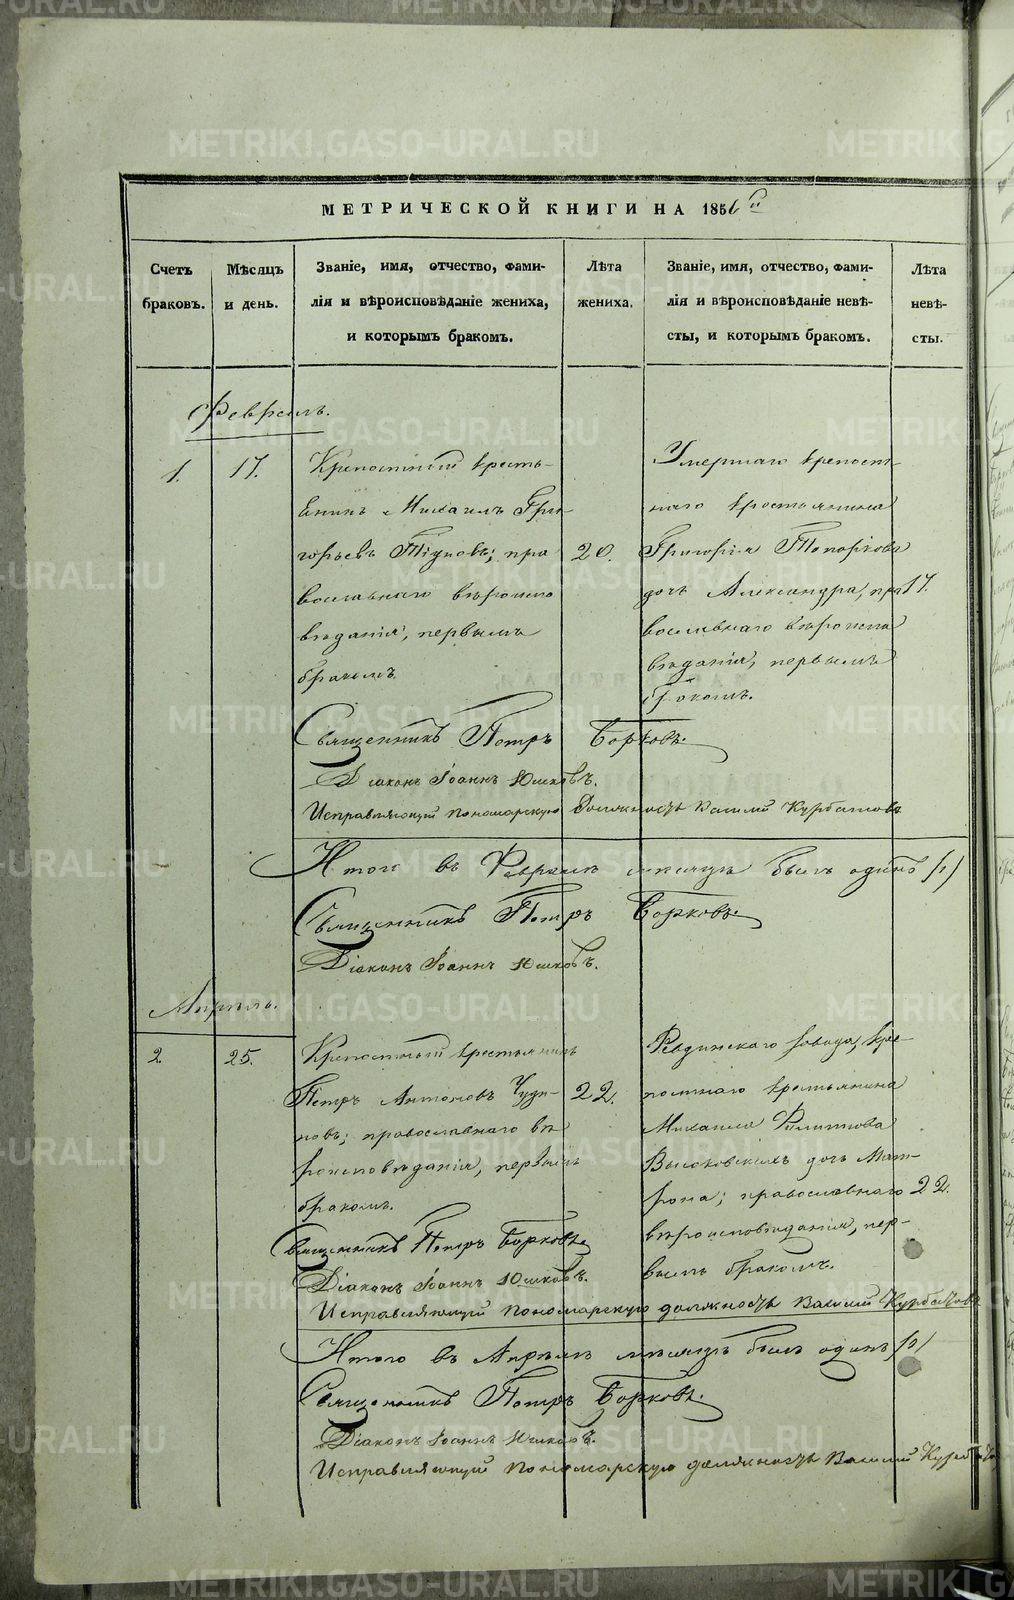 METRIKI.GASO-URAL.RU
МЕТРИЧЕСКОЙ КНИГИ НА 1856 й
Счетъ браковъ.
Мѣсяцъ и день.
Званіе, имя, отчество, фами-
лія и вѣроисповѣданіе жениха,
и которымъ бракомъ.
Лѣта
жениха.
Званіе, имя, отчество, фами-
лія и вѣроисповѣданіе невѣ-
сты, и которымъ бракомъ.
Лѣта
невѣ-
сты.
Февраль.
1.
17.
Крепостный кресть-
янинъ Михаилъ Гри-
горьевъ
пра
вославнаго вѣроиспо
вѣданія, первымъ
бракомъ
20.
Умершаго крепост-
наго крестьянина
Григорія Топоркова
дочь Александра, пра
вославнаго вѣроиспо
вѣданія, первымъ
бракомъ.
17.
Священникъ Петръ Борковъ.
Діаконъ Іоаннъ Юшковъ.
Исправляющій пономарскую должность Василій Курбатовъ
Итого въ Февралѣ мѣсяцѣ былъ одинъ /1/
Священникъ Петръ Борковъ.
Діаконъ Іоаннъ Юшковъ.
Апрѣль.
2.
25.
Крепостный крестьянинъ
Петръ Антоновъ Чуди-
новъ; православнаго вѣ
роисповѣданія, первымъ
бракомъ.
22.
Ревдинскаго завода, кре-
постнаго крестьянина
Михаила Филиппова
Высоковскихъ дочь Мат-
рона; православнаго
вѣроисповѣданія, пер-
вымъ бракомъ.
22.
Священникъ Петръ Борковъ
Діаконъ Іоаннъ Юшковъ.
Исправляющій пономарскую должность Василій Курбатовъ
Итого въ Апрѣлѣ мѣсяцѣ былъ одинъ /1/
Священникъ Петръ Борковъ.
Діаконъ Іоаннъ Юшковъ.
Исправляющій пономарскую должность Василій Курбатовъ